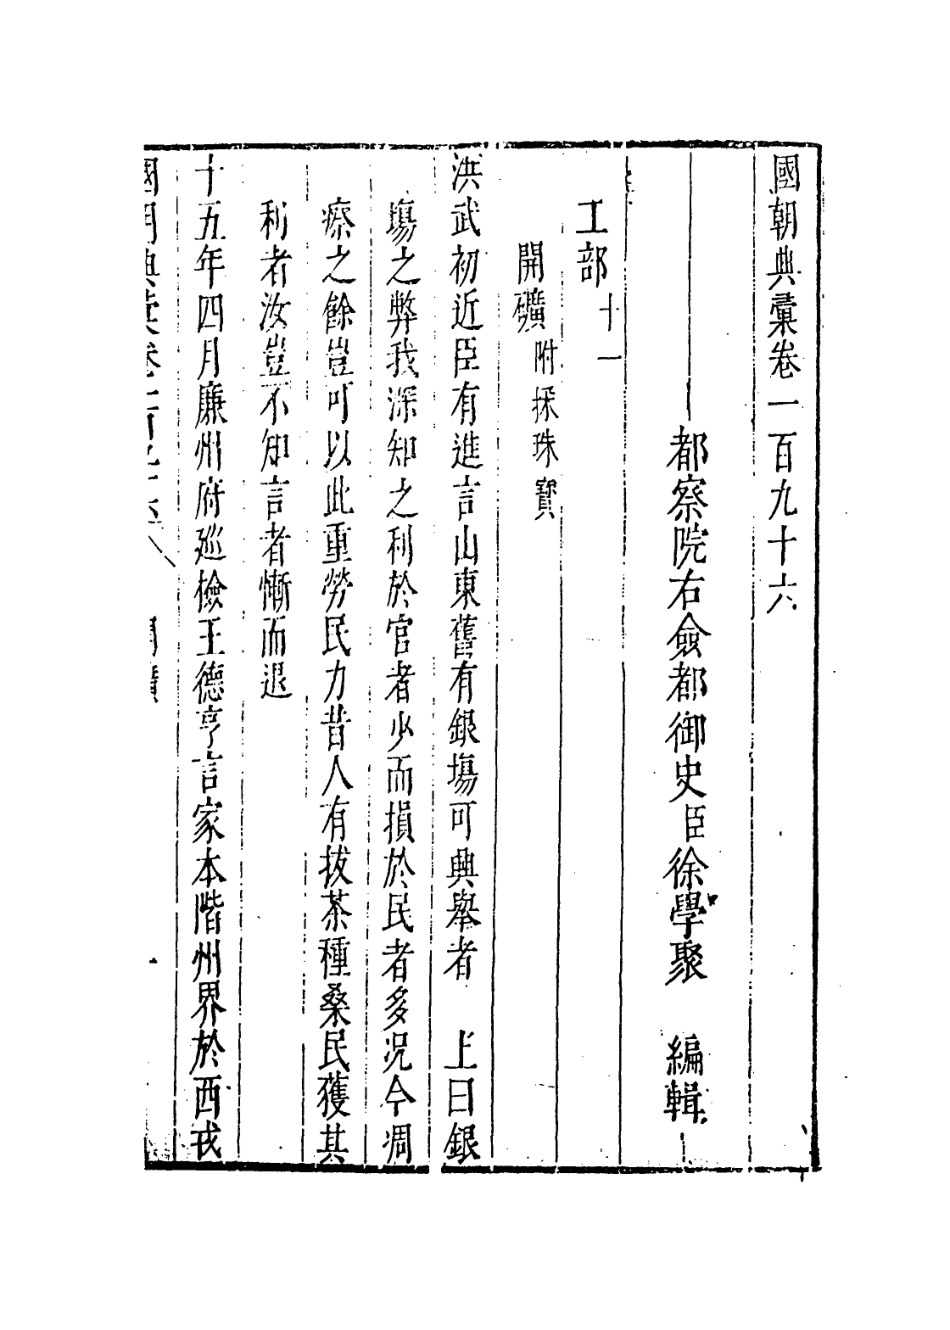 國朝典彙卷一百九十六
都察院右僉都御史臣徐學聚 編輯
工部十一
開礦附採珠寶
洪武初近臣有進言山東舊有銀塲可興舉者 上曰銀
塲之弊我深知之利於官者少而損於民者多況今凋
瘵之餘豈可以此重勞民力昔人有拔茶種桑民獲其
利者汝豈不知言者慚而退
十五年四月廉州府巡檢王德亨言家本階州界於西戎
國朝典彙卷一百九十六 開礦 一